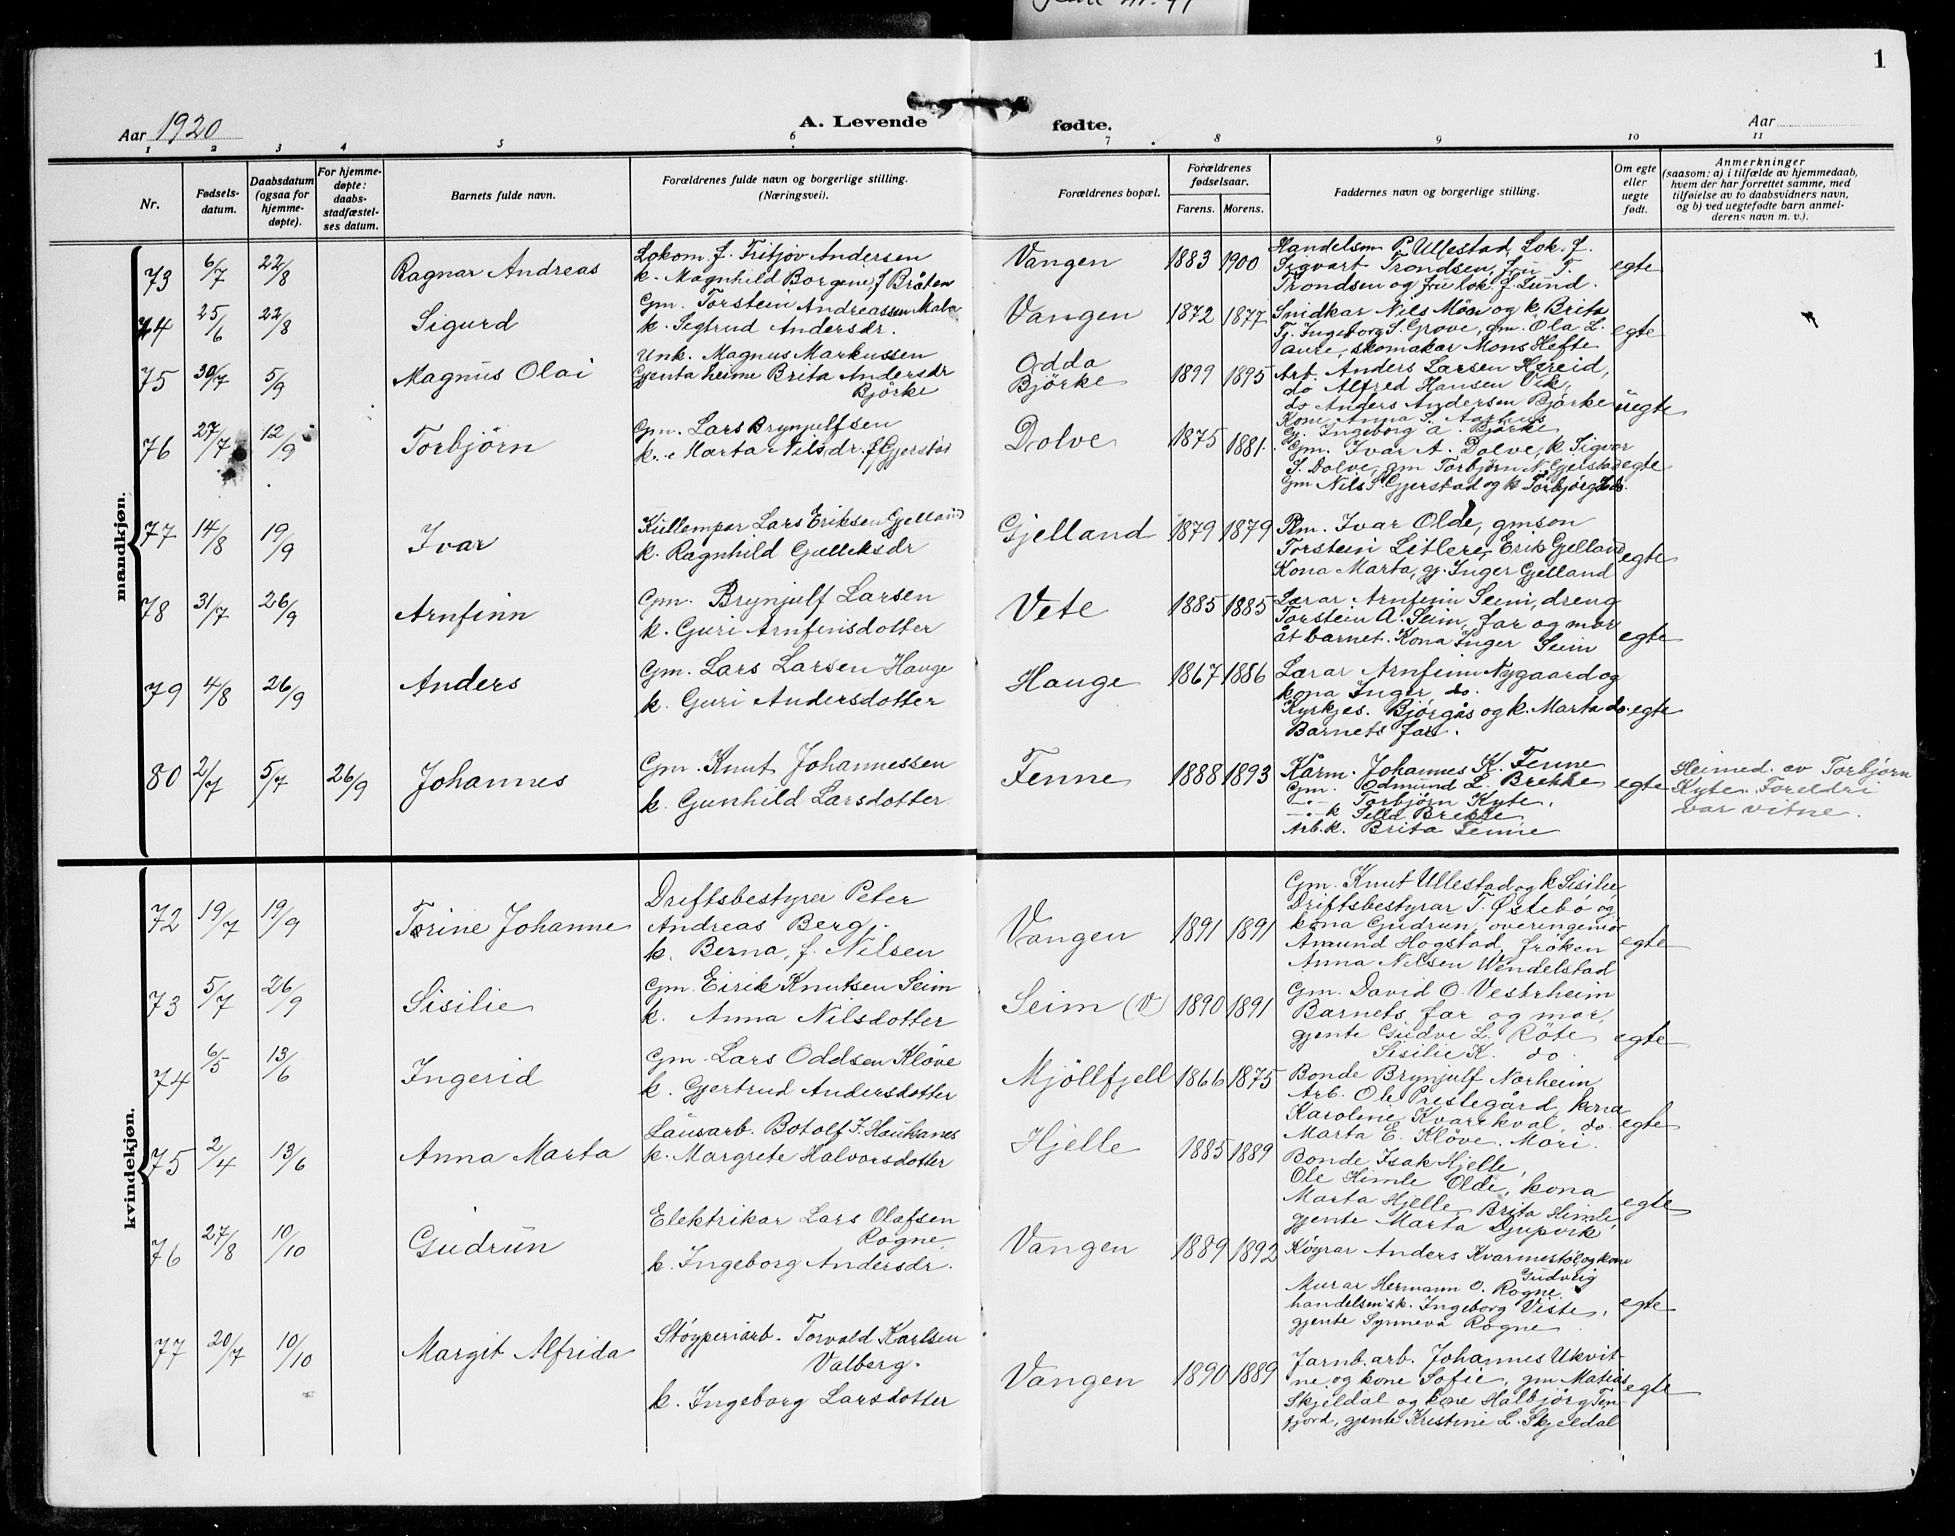 1
Aar 1920
A. Levende fødte.
Aar
1 2 3 4 5 6 7 8 9 10 11
Nr.
Fødsels-
datum.
Daabsdatum
(ogsaa for
hjemme-
døpte).
For hjemme-
døpte:
daabs-
stadfæstel-
ses datum.
Barnets fulde navn.
Forældrenes fulde navn og borgerlige stilling.
(Næringsvei).
Forældrenes bopæl.
Forældrenes
fødselsaar.
Farens. Morens.
Faddernes navn og borgerlige stilling.
Om egte
eller
uegte
født.
Anmerkninger
(saasom: a) i tilfælde av hjemmedaab,
hvem der har forrettet samme, med
tilføielse av to daabsvidners navn,
og b) ved uegtefødte barn anmel-
derens navn m. v.).
mandkjøn.
73 6/7 22/8 Ragnar Andreas
Lokom. f. Fritjov Andersen
k. Magnhild Borgine, f Bråten
Vangen 1883 1900
Handelsm P. Ullestad, Lok. f.
Sigvart Trondsen, fru T.
Trondsen og fru lok. f. Lund.
egte
74 25/6 22/8 Sigurd
Gm. Torstein Andreassen
k. Segtrud Andersdr.
Vangen 1872 1877
Snidkar Nils Möen og k Brita
Tj. Ingeborg S. Grove, gm. Ola L.
aure, skomakar Mons Hefte
egte
75 30/7 5/9 Magnus Olai
Unk. Magnus Markussen
Gjenta heime Brita Andersdr
Björke
Odda
Björke
1899 1895
Arb. Anders Larsen Hereid,
do Alfred Hansen Vik,
do Anders Andersen Björke
Kone Anna S. Aarhus
Gj. Ingeborg A. Björke
uegte
76 27/7 12/9 Torbjörn
Gm. Lars Brynjulfsen
k. Marta Nilsdr. f Gjerstad
Dolve 1875 1881.
Gm. Ivar A. Dolve, k Sigvor
S. Dolve, gm Torbjörn N. Gjerstad
Gm Nils S Gjerstad og k Torbjörg do.
egte
77 14/8 19/9 Ivar
Kullempar Lars Eriksen Gjelland
k. Ragnhild Gulleksdr
Gjelland 1879 1879
Pm. Ivar Olde, gmson
Torstein Litlere, Erik Gjelland
Kona Marta, gj. Inger Gjelland
egte
78 31/7 26/9 Arnfinn
Gm. Brynjulf Larsen
k. Guri Arnfinsdotter
Vete 1885 1885
Lærar Arnfinn Seim, dreng
Torstein A. Seim, far og mor
åt barnet. Kona Inger Seim
egte
79 4/8 26/9 Anders
Gm. Lars Larsen Hauge
k. Guri Andersdotter
Hauge 1867 1886
Lærar Arnfinn Nygaard og
kona Inger do.
Kyrkjes. Björgås og k. Marta do.
Barnets far.
egte
80 2/7 5/7 26/9 Johannes
Gm. Knut Johannessen
k. Gunhild Larsdotter
Fenne 1888 1893
Kårm. Johannes K. Fenne
Gm. Edmund L. Brekke
-"- Torbjörn Kyte.
-"- k Sella Brekke
Arb.k. Brita Fenne
egte
Heimed. av Torbjörn
Kyte. Foreldri
var vitne.
kvindekjøn.
72 19/7 19/9 Torine Johanne
Driftsbestyrer Peter
Andreas Berg.
k. Berna, f. Nilsen
Vangen 1891 1891
Gm. Knut Ullestad og k Sisilie,
Driftsbestyrar T. Østebö og
kona Gudrun, overingeniör
Amund Hogstad, fröken
Anna Nilsen Wendelstad
egte
73 5/7 26/9 Sisilie
Gm. Eirik Knutsen Seim
k. Anna Nilsdotter
Seim (V) 1890 1891
Gm. David O. Vestrheim
Barnets far og mor,
gjente Gudve L. Röte
Sisilie K. do.
egte
74 6/5 13/6 Ingerid
Gm. Lars Oddsen Klöve
k. Gjertrud Andersdotter
Mjöllfjell 1866 1875
Bonde Brynjulf Norheim
Arb. Ole Prestegård, kona
Karoline Kvarekval, do.
Marta E. Klöve. Mori.
egte
75 2/4 13/6 Anna Marta
Lausarb. Botolf I. Haukanes
k. Margrete Halvorsdotter
Hjelle 1885 1889
Bonde Isak Hjelle,
Ole Himle Olde, kona
Marta Hjelle, Brita Himle,
gjente Marta Djupvik
egte
76 27/8 10/10 Gudrun
Elektrikar Lars Olafsen
Rogne
k. Ingeborg Andersdr.
Vangen 1889 1892
Köyrar Anders Kvarmestöl og kona
Gudveig
Murar Hermann O. Rogne,
handelsm.sk. Ingeborg Viste,
gjente Synneva Rogne
egte
77 20/7 10/10 Margit Alfrida
Stöyperiarb. Torvald Karlsen
Valberg.
k. Ingeborg Larsdotter
Vangen 1890 1889
Jarnb.arb. Johannes Ukvit-
ne og kone Sofie, gm Matias
Skjeldal og kone Halbjörg Ten-
fjord, gjente Kristine L. Skjeldal
egte